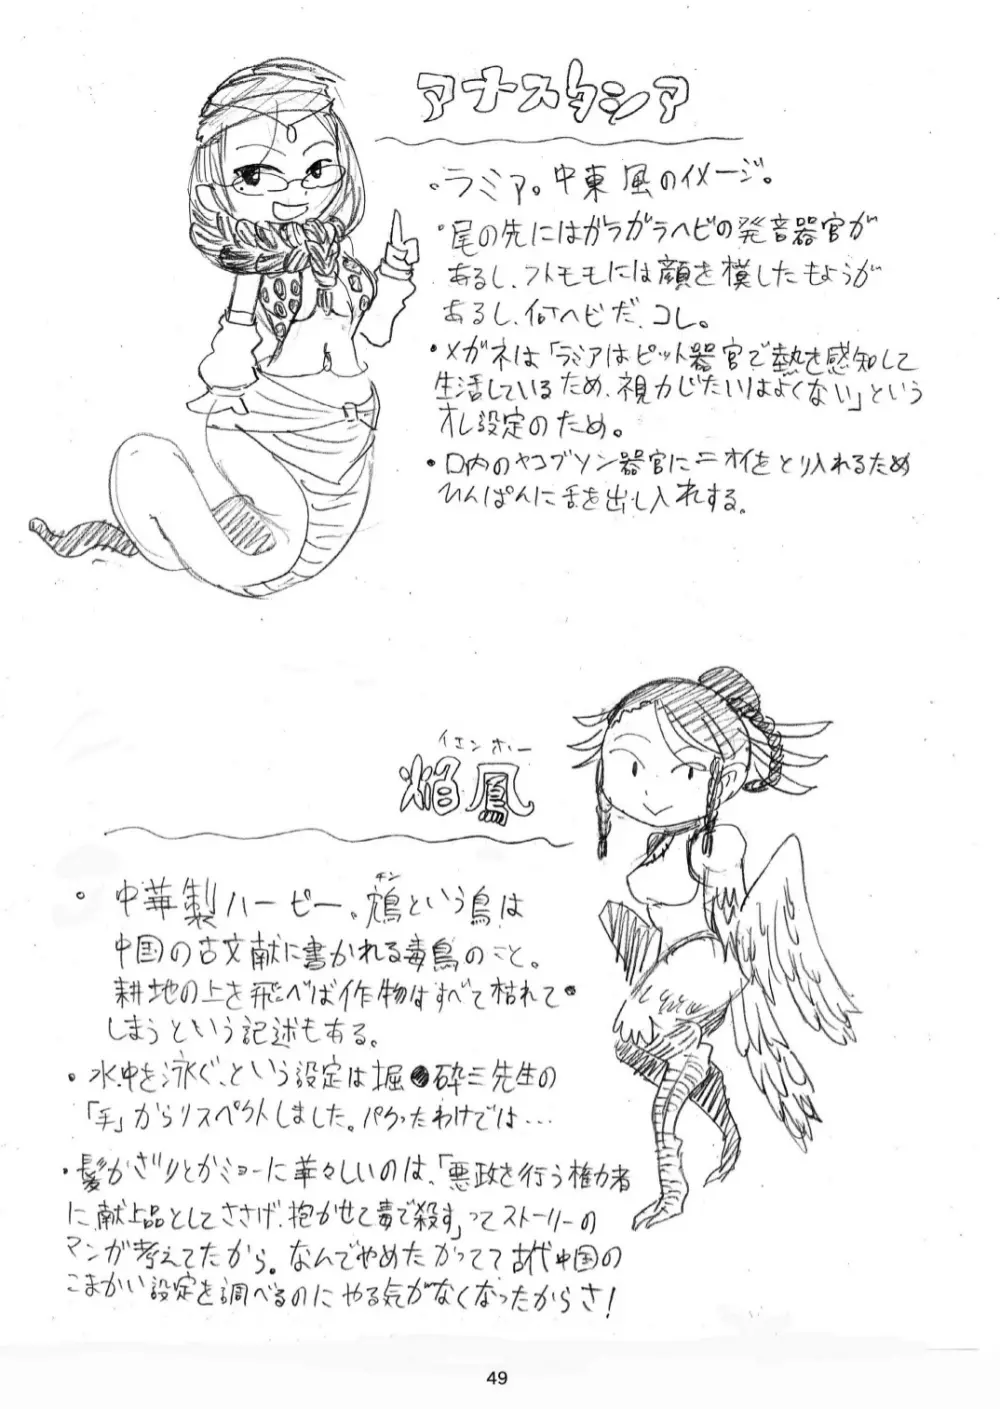 アナスタシア
・ラミア。中東風のイメージ。
・尾の先にはガラガラヘビの発音器官が
あるし、フトモモには顔を模したもようが
あるし、何ヘビだ、コレ。
・メガネは「ラミアはピット器官で熱を感知して
生活しているため、視力じたいはよくない」という
オレ設定のため。
・口内のヤコブソン器官にニオイをとり入れるため
ひんぱんに舌を出し入れする。
イエンホー
焔鳳
・中華製ハーピー。鴆という鳥は
チン
中国の古文献に書かれる毒鳥のこと。
耕地の上を飛べば作物はすべて枯れて
しまうという記述もある。
・水中を泳ぐ、という設定は掘●砕三先生の
「手」からリスペクトしました。パクったわけでは…
・髪かざりとかミョーに華々しいのは、「悪政を行う権力者
に献上品としてささげ、抱かせて毒で殺す」ってストーリーの
マンガ考えてたから。なんでやめたかって古代中国の
こまかい設定を調べるのにやる気がなくなったからさ!
49